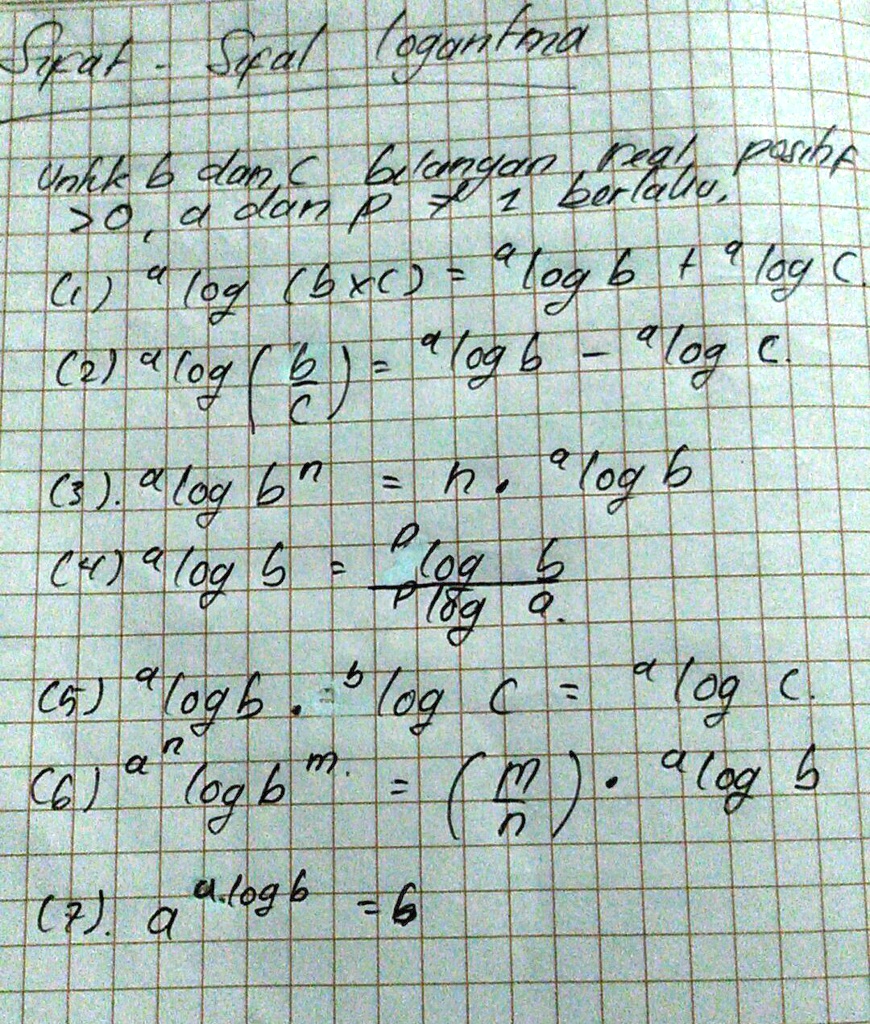 Sifat - Sifat logaritma
Untuk b dan C bilangan real positif
>0, a dan p ≠ 1 berlaku,
(1) ᵃlog (b×c) = ᵃlog b + ᵃlog c.
(2) ᵃlog (b/c) = ᵃlog b - ᵃlog c.
(3). ᵃlog bⁿ = n. ᵃlog b
(4) ᵃlog b = ᵖlog b / ᵖlog a.
(5) ᵃlog b . ᵇlog c = ᵃlog c.
(6) ᵃ^ⁿ log bᵐ. = (m/n) . ᵃlog b
(7). a^(a.log b) = b